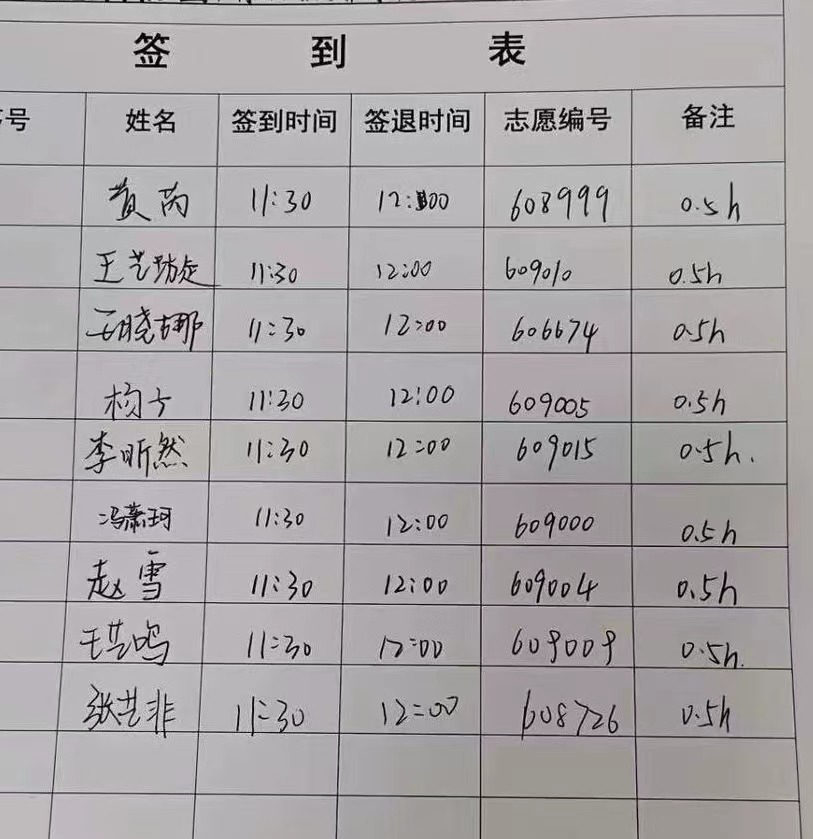 签 到 表
号 姓名 签到时间 签退时间 志愿编号 备注
黄芮 11:30 12:00 608999 0.5h
王艺璇 11:30 12:00 609010 0.5h
王晓娜 11:30 12:00 606674 0.5h
杨方 11:30 12:00 609005 0.5h
李昕然 11:30 12:00 609015 0.5h.
冯萧珂 11:30 12:00 609000 0.5h
赵雪 11:30 12:00 609004 0.5h
王艺鸣 11:30 12:00 609009 0.5h.
张艺非 11:30 12:00 608726 0.5h